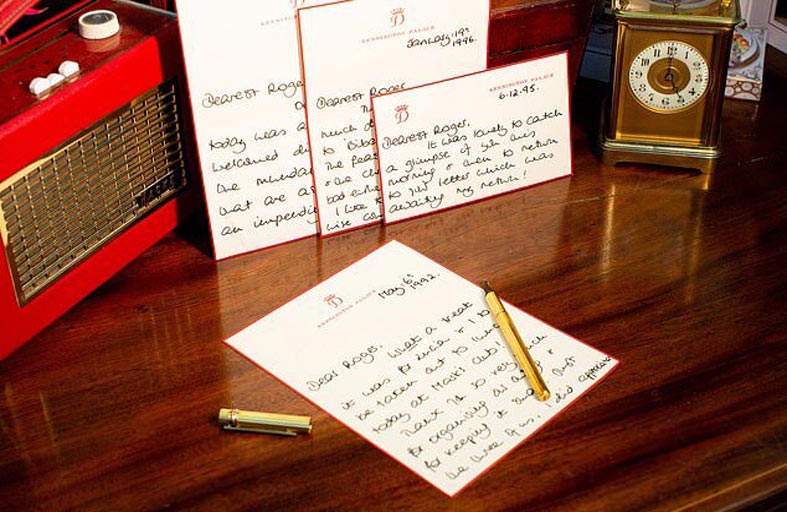 KENSINGTON PALACE
Dearest Roger
today was a
welcomed
the munda
what are a
an impendi
D
KENSINGTON PALACE
January. 19th
1996.
Dearest Roger
Th
much
to
The
bad
I like to
wise
D
KENSINGTON PALACE
6.12.95.
Dearest Roger,
It was lovely to catch
a glimpse of you this
morning & then to return
to your letter which was
awaiting my return!
D
KENSINGTON PALACE
May. 6th
1992.
Dear Roger,
What a treat
it was for Lucia & I to
be taken out to lunch
today at Mark's Club.
Thank you so very much
for organising
for keeping it just
the three of us, I did appreciate